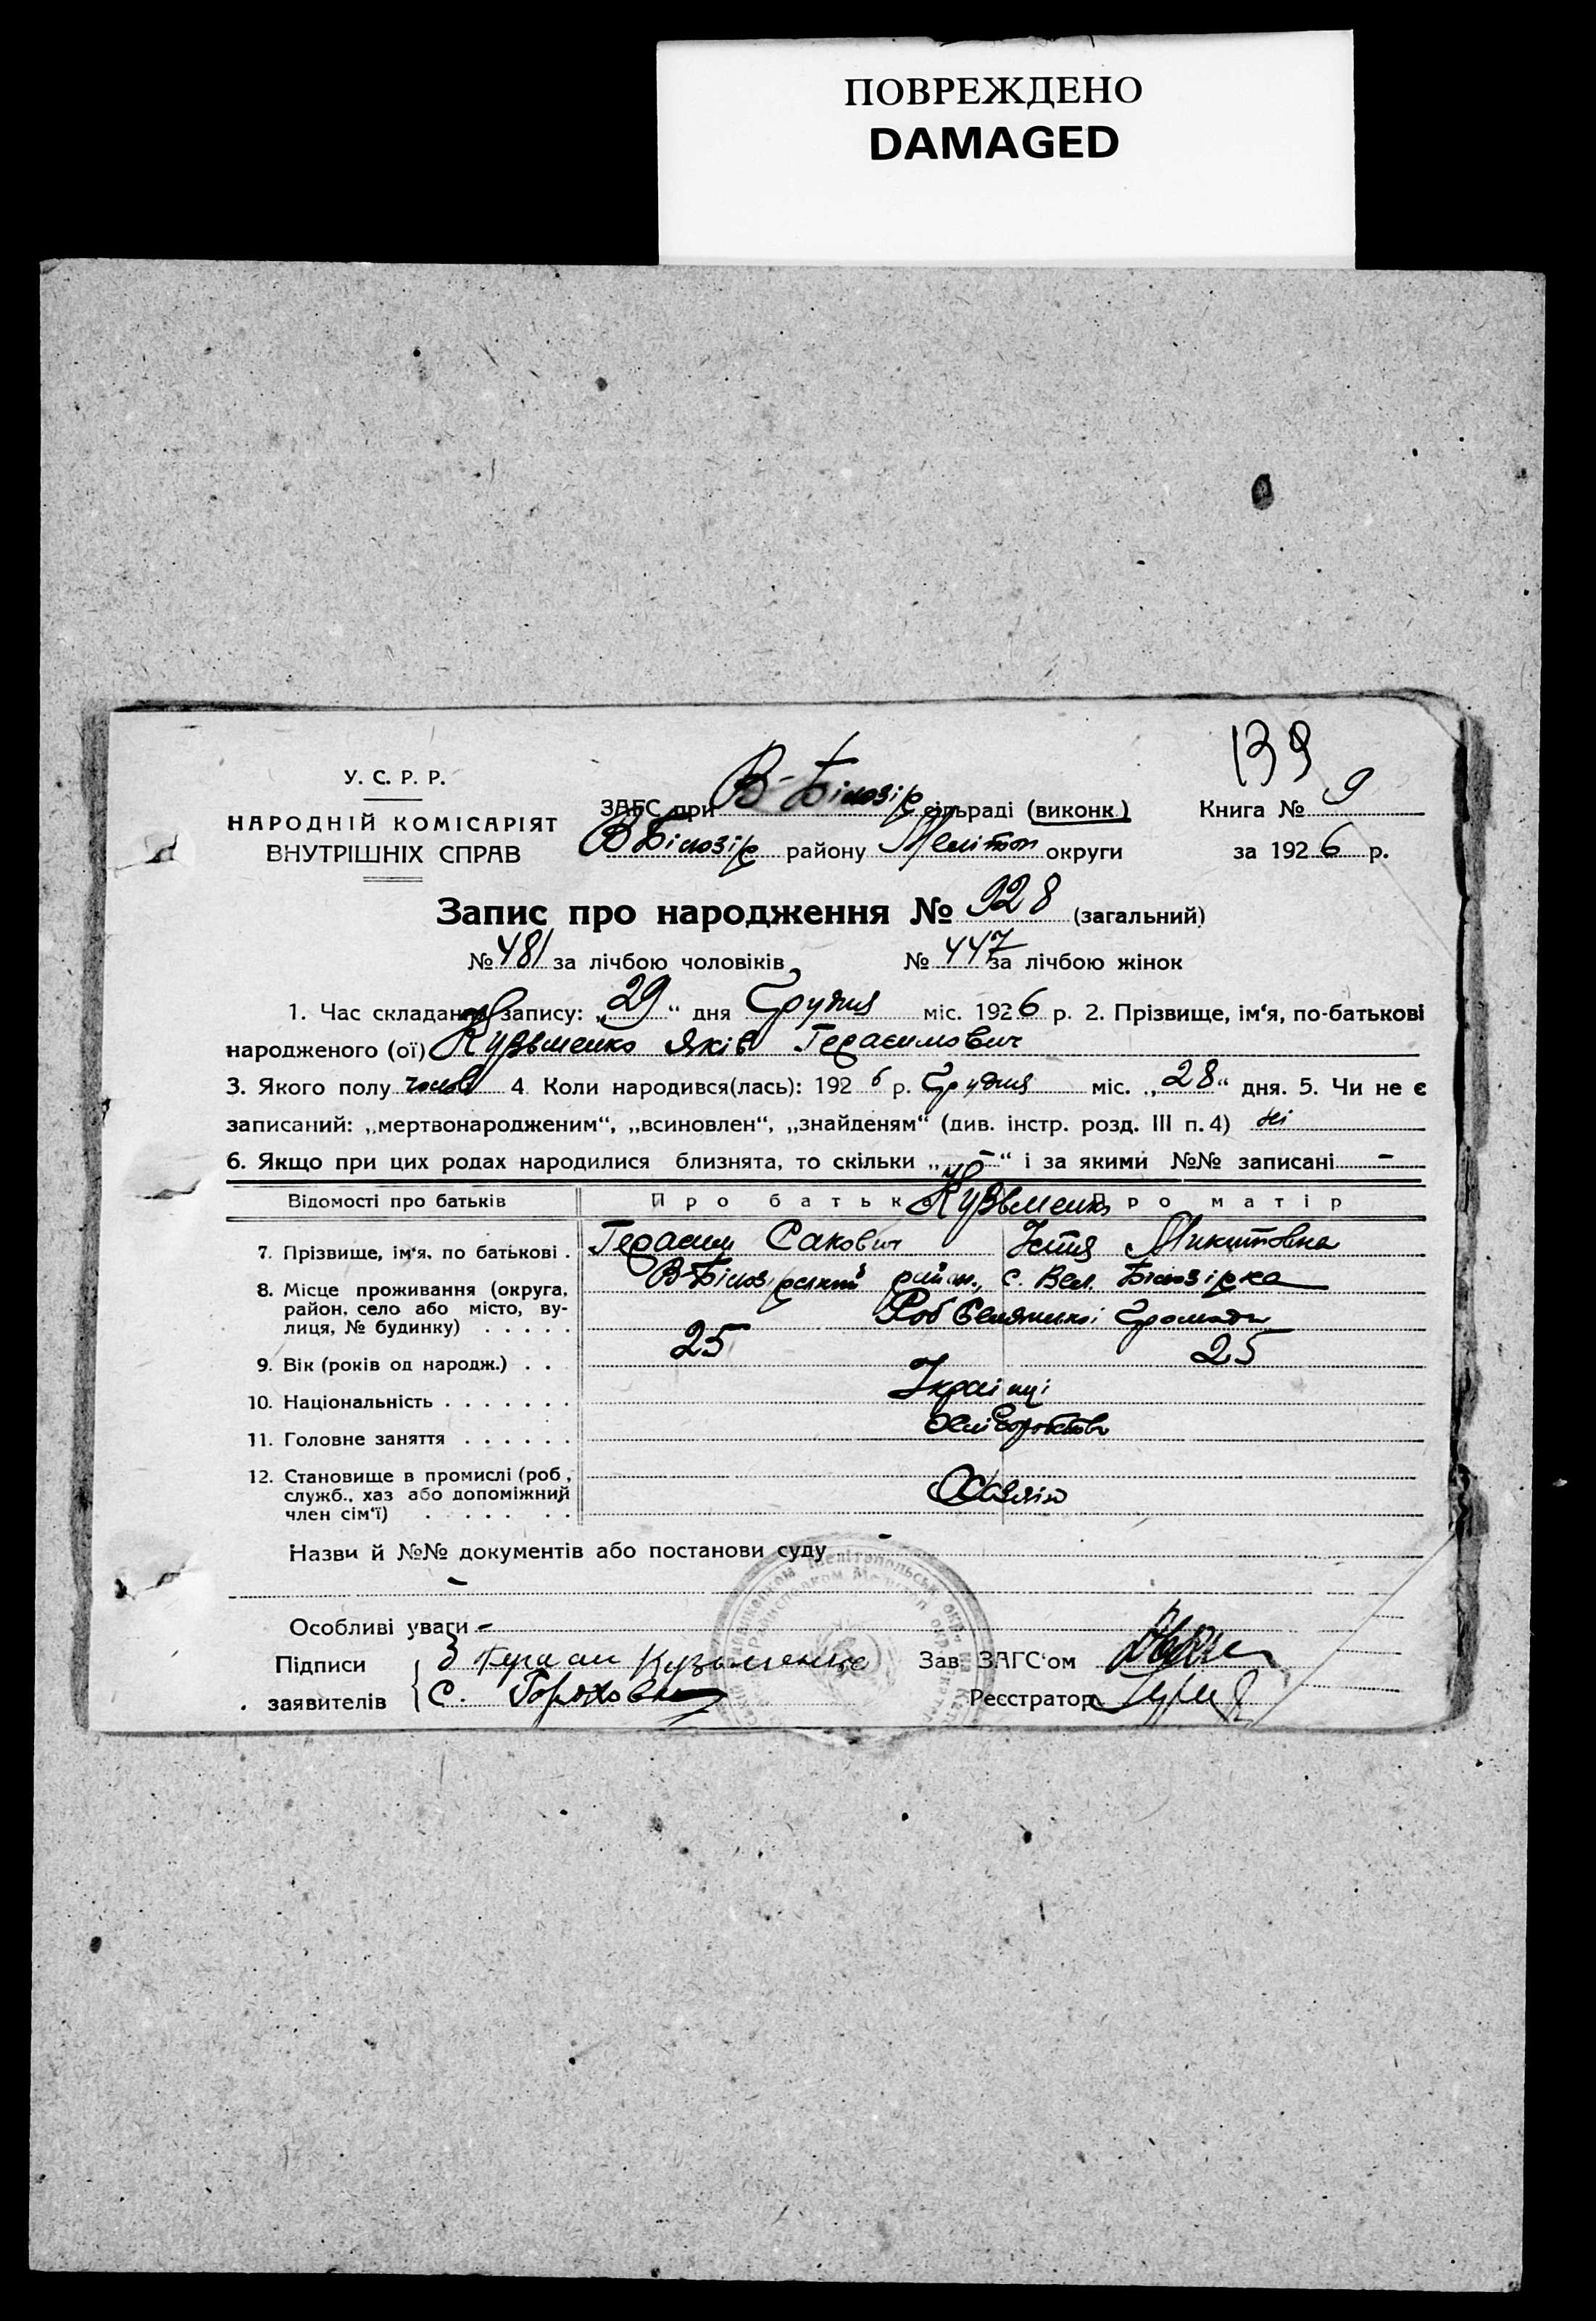 ПОВРЕЖДЕНО
DAMAGED
139
У. С. Р. Р.
НАРОДНІЙ КОМІСАРІЯТ
ВНУТРІШНІХ СПРАВ
ЗАГС при В-Білозір сільраді (виконк.) Книга № 9
В Білозір району Меліт округи за 1926 р.
Запис про народження № 928 (загальний)
№ 481 за лічбою чоловіків № 447 за лічбою жінок
1. Час складання запису: „29“ дня Грудня міс. 1926 р. 2. Прізвище, ім‘я, по-батькові
народженого (ої) Кузьменко Яків Герасимович
3. Якого полу чолов 4. Коли народився(лась): 1926 р. Грудня міс. „28“ дня. 5. Чи не є
записаний: „мертвонародженим“, „всиновлен“, „знайденям“ (див. інстр. розд. III п. 4) ні
6. Якщо при цих родах народилися близнята, то скільки „–“ і за якими №№ записані –
Відомості про батьків Про батька Про матір
Кузьменко
7. Прізвище, ім‘я, по батькові . Герасим Сакович Устя Микитовна
8. Місце проживання (округа, район, село або місто, вулиця, № будинку) . . . . . В-Білозірський район., с. Вел. Білозірка
Громади
9. Вік (років од народж.) . . 25 25
10. Національність . . . . . . . Українці
11. Головне заняття . . . . . .
12. Становище в промислі (роб., служб., хаз або допоміжний член сім‘ї) . . . . . . .
Назви й №№ документів або постанови суду –
–
Особливі уваги –
Підписи заявителів { Герасим Кузьменко
С.
Зав. ЗАГС‘ом
Реєстратор